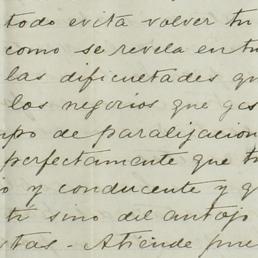 todo evita volver tu
como se revela en tu
las dificultades qu
los negocios que ges
mpo de paralizacion
perfectamente que t
o y conducente y q
tu sino del antojo
stas - Atiende pue